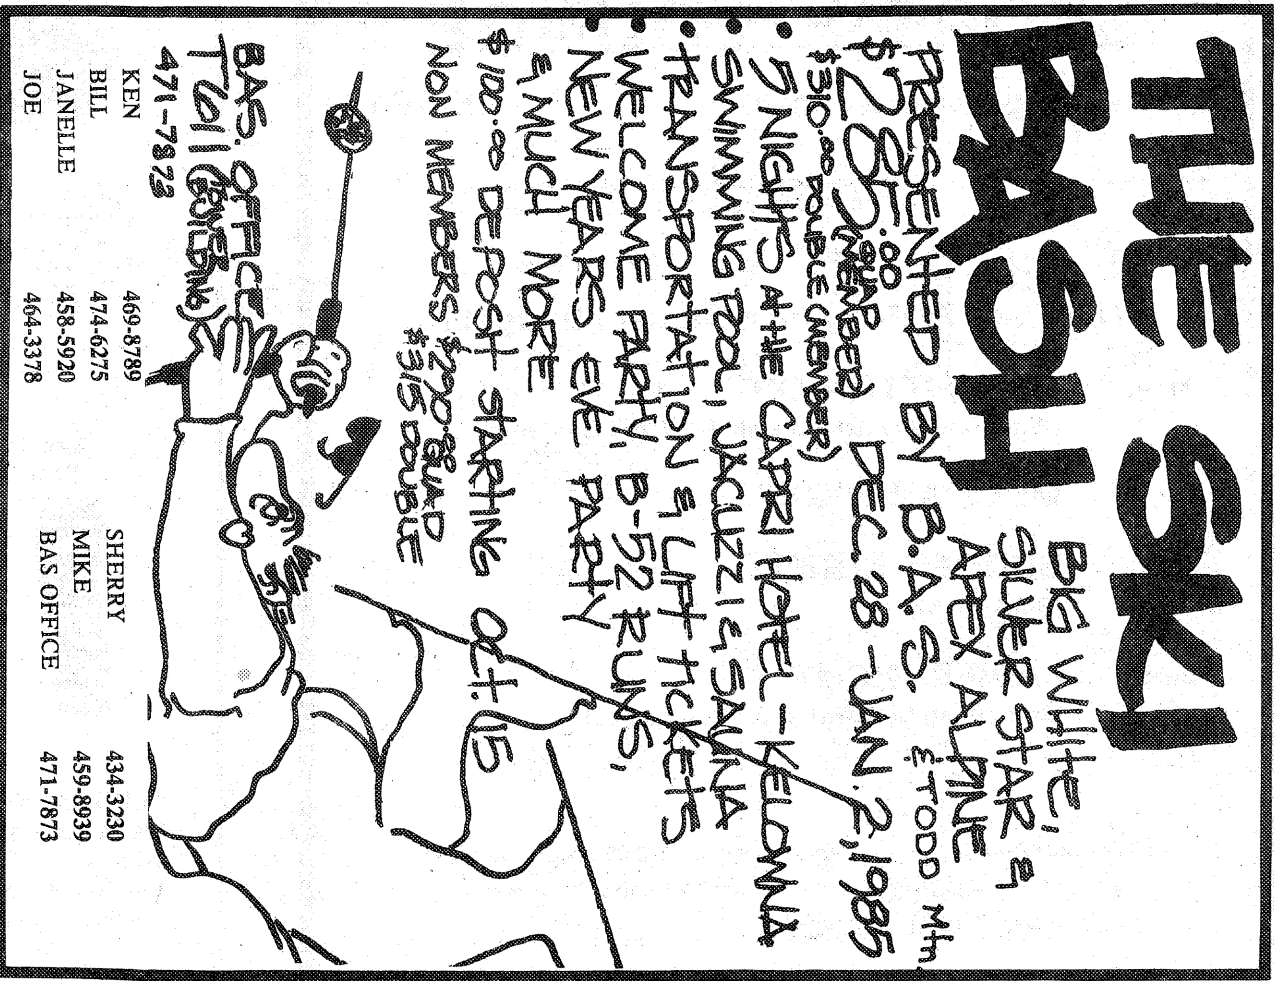 THE SKI
BASH
BIG WHITE,
SILVER STAR &
APEX ALPINE
& TODD Mtn.
PRESENTED BY B.A.S.
$285.00 QUAD (MEMBER) DEC. 28 - JAN. 2, 1985
$310.00 DOUBLE (MEMBER)
• 5 NIGHTS AT THE CAPRI HOTEL - KELOWNA
• SWIMMING POOL, JACUZZI & SAUNA
• TRANSPORTATION & LIFT TICKETS
• WELCOME PARTY, B-52 RUNS,
• NEW YEARS EVE PARTY
& MUCH MORE
$100.00 DEPOSIT STARTING OCT. 15
NON MEMBERS $290.00 QUAD
$315 DOUBLE
BAS. OFFICE
T6011 (POWER BUILDING)
471-7873
KEN 469-8789
BILL 474-6275
JANELLE 458-5920
JOE 464-3378
SHERRY 434-3230
MIKE 459-8939
BAS OFFICE 471-7873